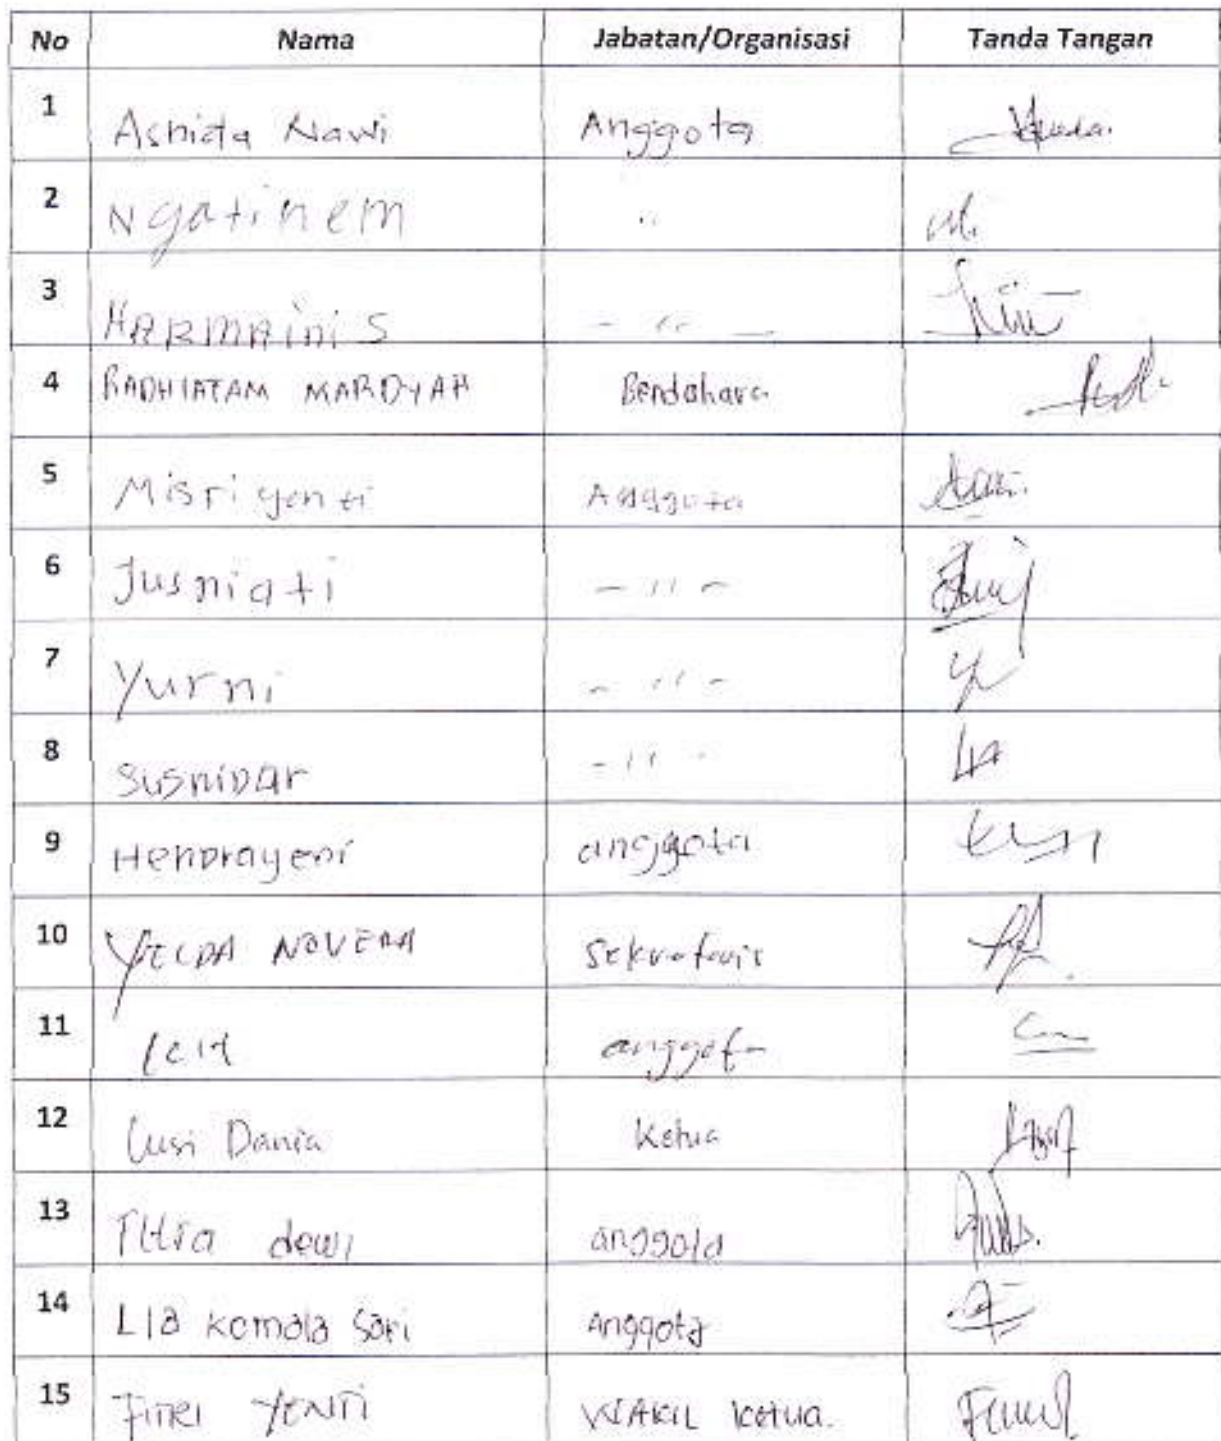 No Nama Jabatan/Organisasi Tanda Tangan
1 Ashida Nawi Anggota
2 Ngatinem "
3 HARMAiniS - " -
4 RADHIATAM MARDYAH Bendahara
5 Misriyenti Anggota
6 Jusniati - " -
7 Yurni - " -
8 SusniDar - " -
9 HenDrayeni anggota
10 YELDA NOVERA Sekretaris
11 anggota
12 Lusi Dania Ketua
13 Fitria dewi anggota
14 Lia Komala Sari Anggota
15 FITRI YENTI WAKIL Ketua.